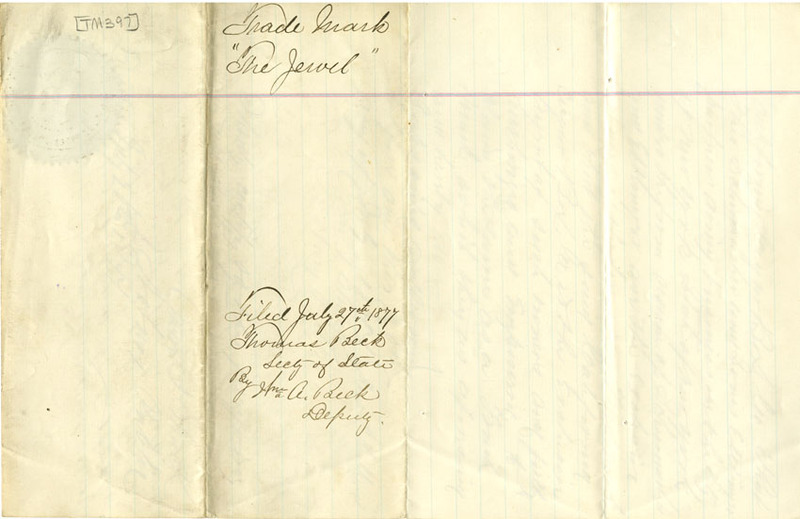 [TM397]
Trade Mark
"The Jewel"
Filed July 27th 1877
Thomas Beck
Secty of State
By Wm A. Beck
Deputy.